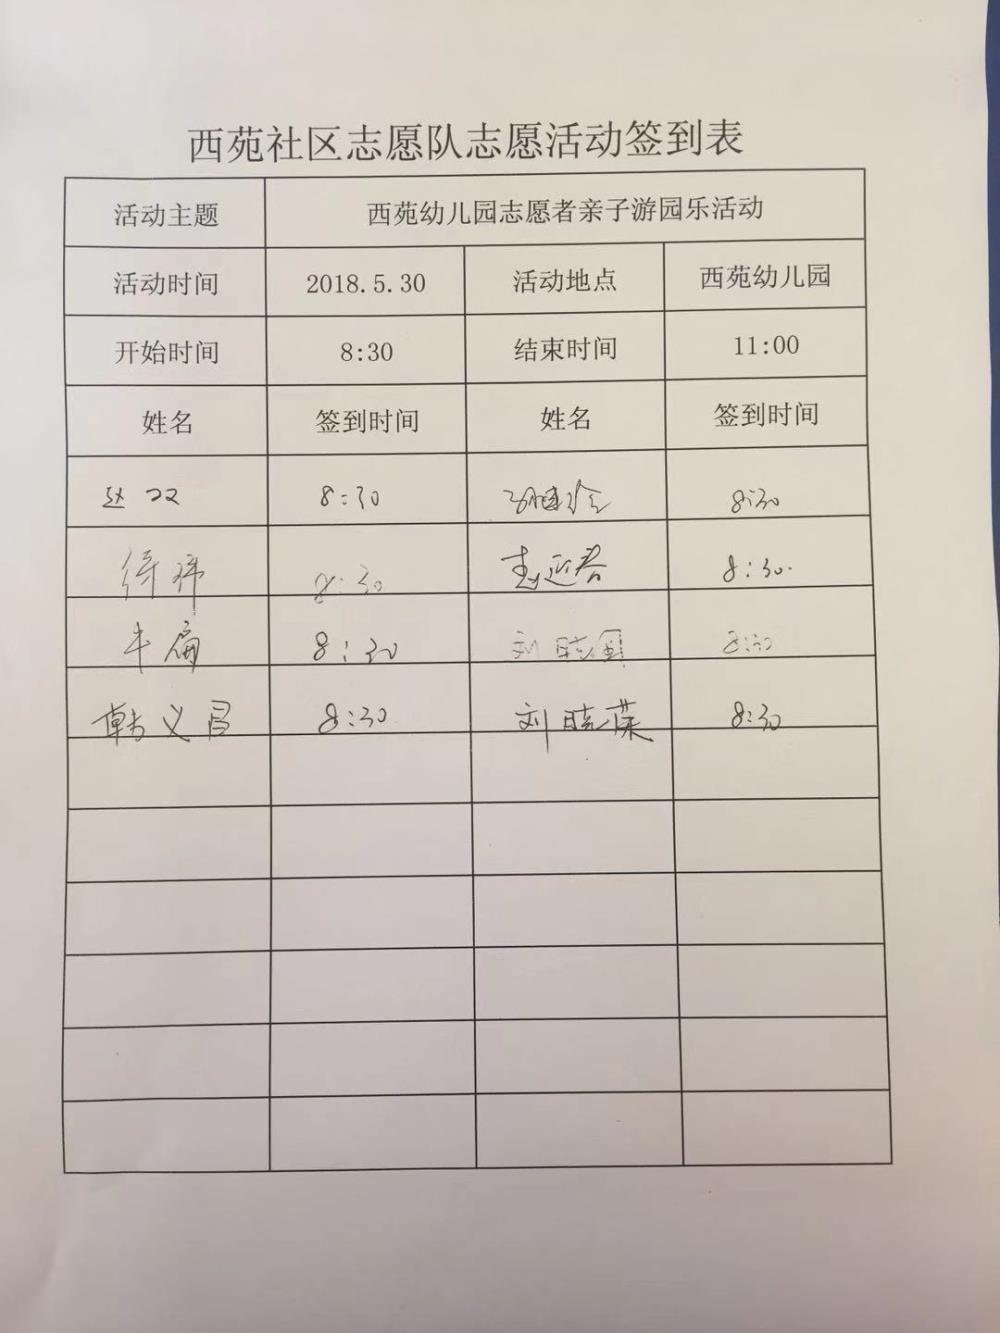 西苑社区志愿队志愿活动签到表
活动主题 西苑幼儿园志愿者亲子游园乐活动
活动时间 2018.5.30 活动地点 西苑幼儿园
开始时间 8:30 结束时间 11:00
姓名 签到时间 姓名 签到时间
8:30 8:30
8:30 8:30
8:30 刘晓 8:30
韩义昌 8:30 刘晓 8:30